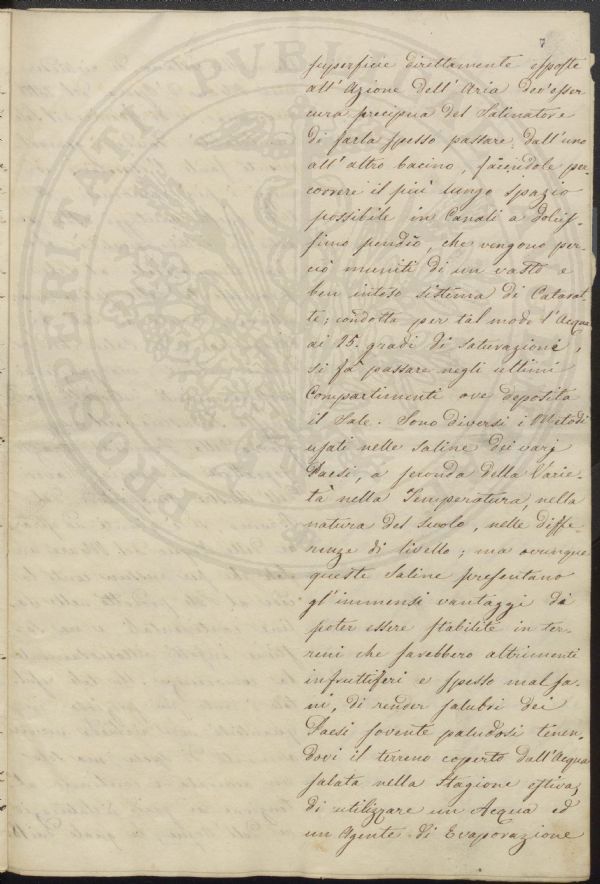 7
superficie direttamente esposte
all'Azione dell'Aria dev'esser
cura precipua del Salinatore
di farla spesso passare dall'uno
all'altro bacino, facendole per-
correre il più lungo spazio
possibile in Canali a dolcis-
simo pendìo, che vengono per-
ciò muniti di un vasto e
ben inteso sistema di Catarat-
te; condotta per tal modo l'Acqua
ai 25. gradi di saturazione,
si fà passare negli ultimi
Compartimenti ove deposita
il Sale. Sono diversi i Metodi
usati nelle saline dei varj
Paesi, a seconda della Varie-
tà nella Temperatura, nella
natura del suolo, nelle diffe-
renze di livello; ma ovunque
queste Saline presentano
gl'immensi vantaggi di
poter essere stabilite in ter-
reni che sarebbero altrimenti
infruttiferi e spesso mal sa-
ni, di render salubri dei
Paesi sovente paludosi tenen-
dovi il terreno coperto dall'Acqua
salata nella Stagione estiva;
di utilizzare un Acqua ed
un Agente di Evaporazione
PROSPERITATI PVBLICAE